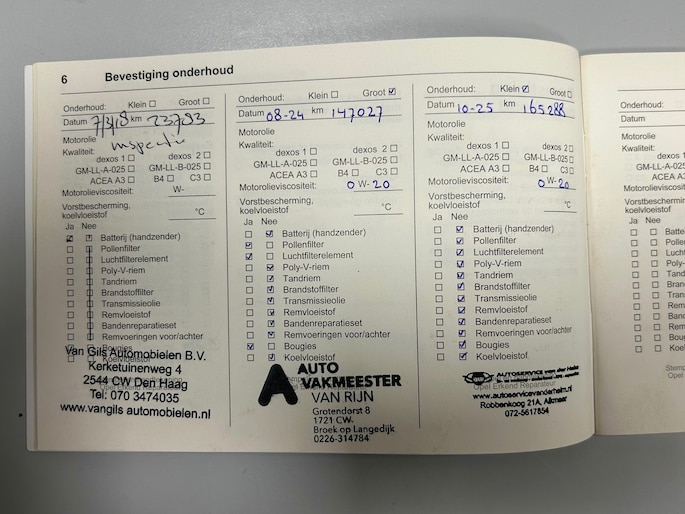 6 Bevestiging onderhoud
Onderhoud: Klein ☐ Groot ☐
Datum 7/3/18 km 23793
Motorolie
Inspectie
Kwaliteit:
dexos 1 ☐ dexos 2 ☐
GM-LL-A-025 ☐ GM-LL-B-025 ☐
ACEA A3 ☐ B4 ☐ C3 ☐
Motorolieviscositeit: W-
Vorstbescherming,
koelvloeistof °C
Ja Nee
Batterij (handzender)
Pollenfilter
Luchtfilterelement
Poly-V-riem
Tandriem
Brandstoffilter
Transmissieolie
Remvloeistof
Bandenreparatieset
Remvoeringen voor/achter
Bougies
Van Gils Automobielen B.V.
Kerketuinenweg 4
2544 CW Den Haag
Tel: 070 3474035
www.vangils automobielen.nl
Onderhoud: Klein ☐ Groot ☑
Datum 08-24 km 147027
Motorolie
Kwaliteit:
dexos 1 ☐ dexos 2 ☐
GM-LL-A-025 ☐ GM-LL-B-025 ☐
ACEA A3 ☐ B4 ☐ C3 ☐
Motorolieviscositeit: 0 W- 20
Vorstbescherming,
koelvloeistof °C
Ja Nee
Batterij (handzender)
Pollenfilter
Luchtfilterelement
Poly-V-riem
Tandriem
Brandstoffilter
Transmissieolie
Remvloeistof
Bandenreparatieset
Remvoeringen voor/achter
Bougies
Koelvloeistof
AUTO
VAKMEESTER
VAN RIJN
Grotendorst 8
1721 CW.
Broek op Langedijk
0226-314784
Onderhoud: Klein ☑ Groot ☐
Datum 10-25 km 165288
Motorolie
Kwaliteit:
dexos 1 ☐ dexos 2 ☐
GM-LL-A-025 ☐ GM-LL-B-025 ☐
ACEA A3 ☐ B4 ☐ C3 ☐
Motorolieviscositeit: 0 W- 20
Vorstbescherming,
koelvloeistof °C
Ja Nee
Batterij (handzender)
Pollenfilter
Luchtfilterelement
Poly-V-riem
Tandriem
Brandstoffilter
Transmissieolie
Remvloeistof
Bandenreparatieset
Remvoeringen voor/achter
Bougies
Koelvloeistof
AUTOSERVICE van der Helm
Opel Erkend Reparateur
www.autoservicevanderhelm.nl
Robbenkoog 21A, Alkmaar
072-5617854
Onderhoud:
Datum
Motorolie
Kwaliteit:
GM-LL-A
Motorolievis
Vorstbescherm
koelvloeistof
Ja Nee
Batte
Polle
Luch
Poly-
Tand
Bran
Tran
Rem
Ban
Rem
Bou
Koel
Stemp
Opel